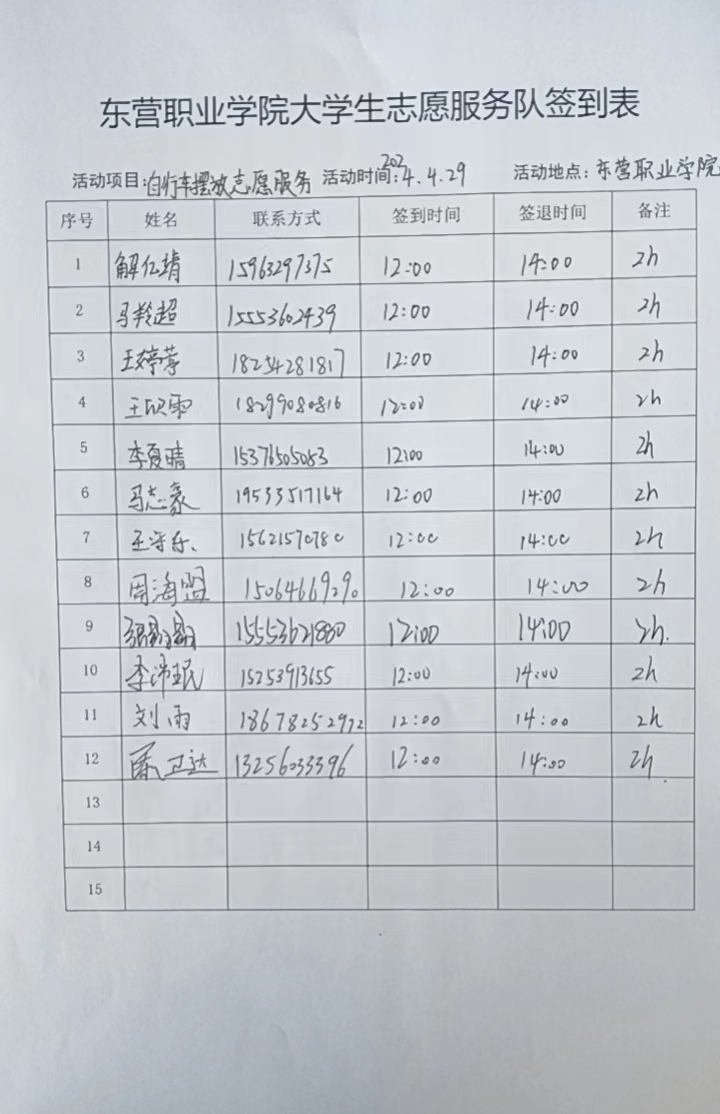 东营职业学院大学生志愿服务队签到表
活动项目:自行车摆放志愿服务 活动时间:2024.4.29 活动地点:东营职业学院
序号 姓名 联系方式 签到时间 签退时间 备注
1 解仁靖 15963297375 12:00 14:00 2h
2 马羚超 15553602439 12:00 14:00 2h
3 王婷 18254281817 12:00 14:00 2h
4 王欣雨 18299080816 12:00 14:00 2h
5 李夏晴 15376505083 12:00 14:00 2h
6 马志豪 19533517164 12:00 14:00 2h
7 王守乐 15621570780 12:00 14:00 2h
8 周海盟 15064669290 12:00 14:00 2h
9 15553621880 12:00 14:00 2h.
10 李沛珉 15253913655 12:00 14:00 2h
11 刘雨 18678252972 12:00 14:00 2h
12 卫达 13256033396 12:00 14:00 2h
13
14
15